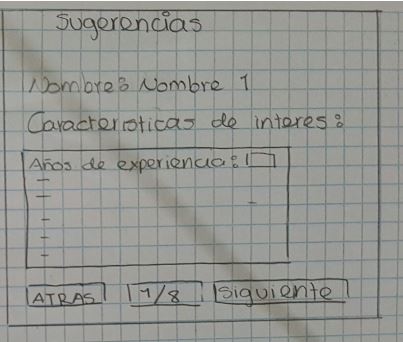 Sugerencias
Nombre: Nombre 1
Caracteristicas de interes:
Años de experiencia:
-
-
-
-
-
ATRAS 1/8 siguiente